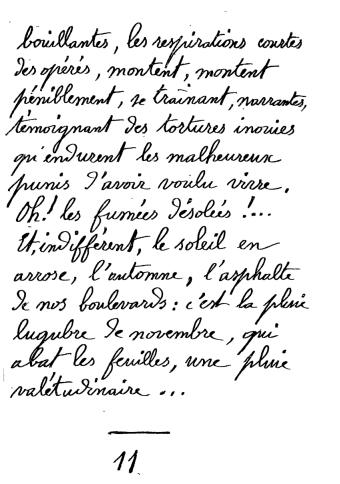 bouillantes, les respirations courtes
des opérés, montent, montent
péniblement, se traînant, narrantes,
témoignant des tortures inouies
qu'endurent les malheureux
punis d'avoir voulu vivre.
Oh! les fumées désolées !...
Et, indifférent, le soleil en
arrose, l'automne, l'asphalte
de nos boulevards : c'est la pluie
lugubre de novembre, qui
abat les feuilles, une pluie
valétudinaire ...
11